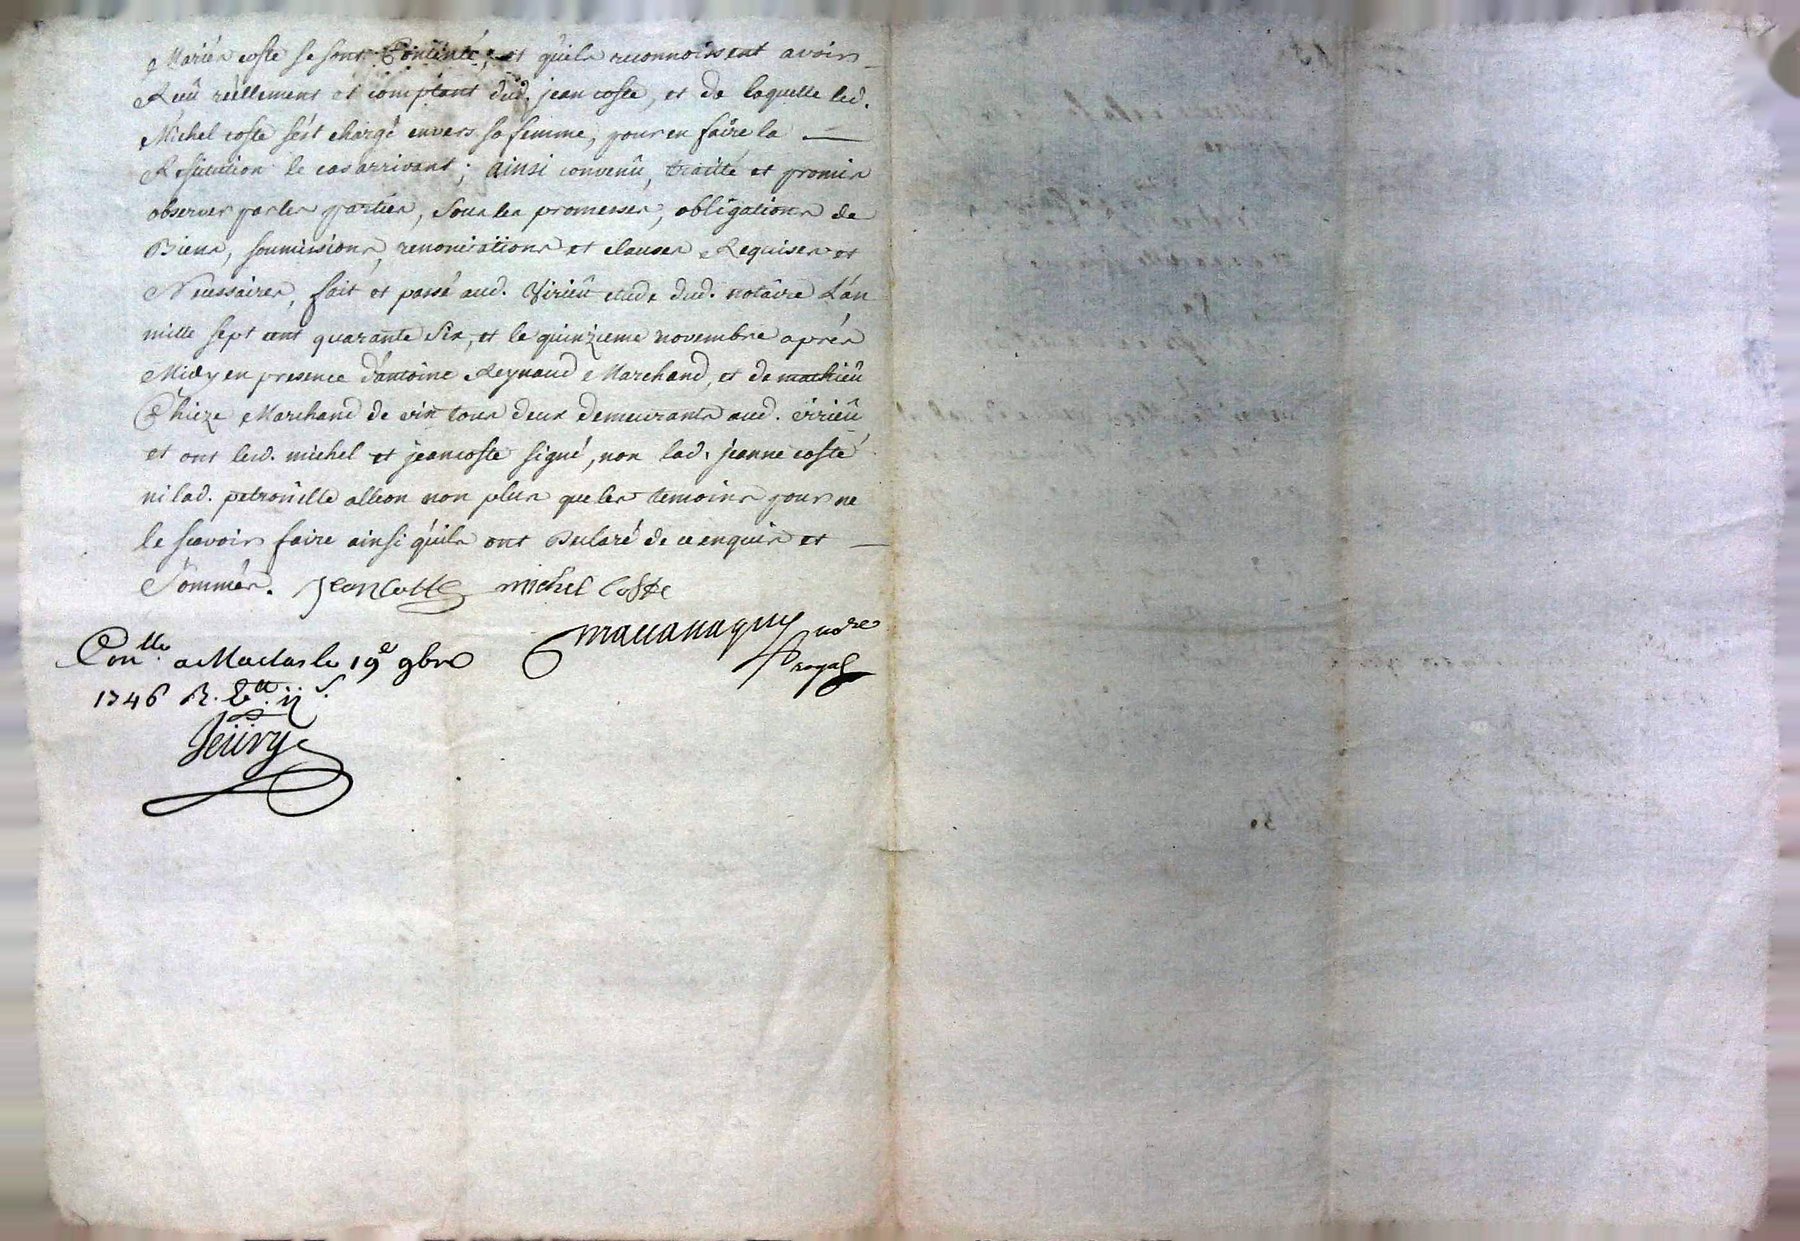 Mariés coste se sont Contentés, et quils reconnoissent avoir
Reçû réellement et comptant dud. jean coste, et de laquelle led.
Michel coste s'est chargé envers sa femme, pour en faire la
Restitution le cas arrivant; ainsi convenû, traitté et promis
observer par les parties, sous les promesses, obligations de
Biens, soumissions, renonciations et clauses Requises et
Necessaires, fait et passé aud. Virieû etude dud. notaire L'an
mille sept cent quarante six, et le quinzieme novembre aprés
Midy en presence d'antoine Reynaud Marchand, et de mathieû
Chieze Marchand de vin tous deux demeurants aud. virieû
et ont lesd. michel et jean coste signé, non lad. jeanne coste
ni lad. petronille alleon non plus que les temoins pour ne
le sçavoir faire ainsi quils ont Declaré de ce enquis et
Sommés. Jean Coste michel Coste
nore
Conlle a Maclas le 19e 9bre
royal
1746 R.